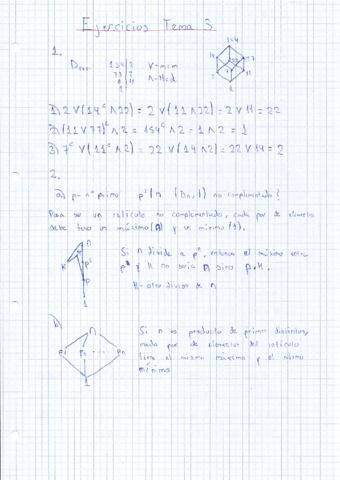 Ejercicios Tema 3
1.
154
D₁₅₄ 154|2 V=mcm
77|7 Λ=Mcd
11|11
14 22 77
2 7 11
1) 2 V (14ᶜ Λ 22) = 2 V (11 Λ 22) = 2 V 11 = 22
2) (11 V 77)ᶜ Λ 2 = 154ᶜ Λ 2 = 1 Λ 2 = 1
3) 7ᶜ V (11ᶜ Λ 2) = 22 V (14 Λ 2) = 22 V 14 = 2
2.
a) p = nº primo p²/n (Dn, 1) no complementado?
Para ser un retículo no complementado, cada par de elementos
debe tener un máximo (n) y un mínimo (1).
n
Si n divide a p², entonces el máximo entre
K p²
p² y K no sería n sino p·K.
p
K = otro divisor de n
1
b)
n
Si n es producto de primos distintos,
cada par de elementos del retículo
p₁ p₂ .... pn
tiene el mismo máximo y el mismo
mínimo
1